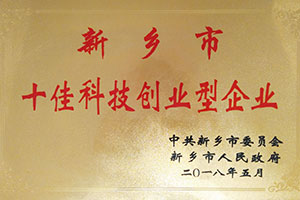 新乡市
十佳科技创业型企业
中共新乡市委员会
新乡市人民政府
二〇一八年五月